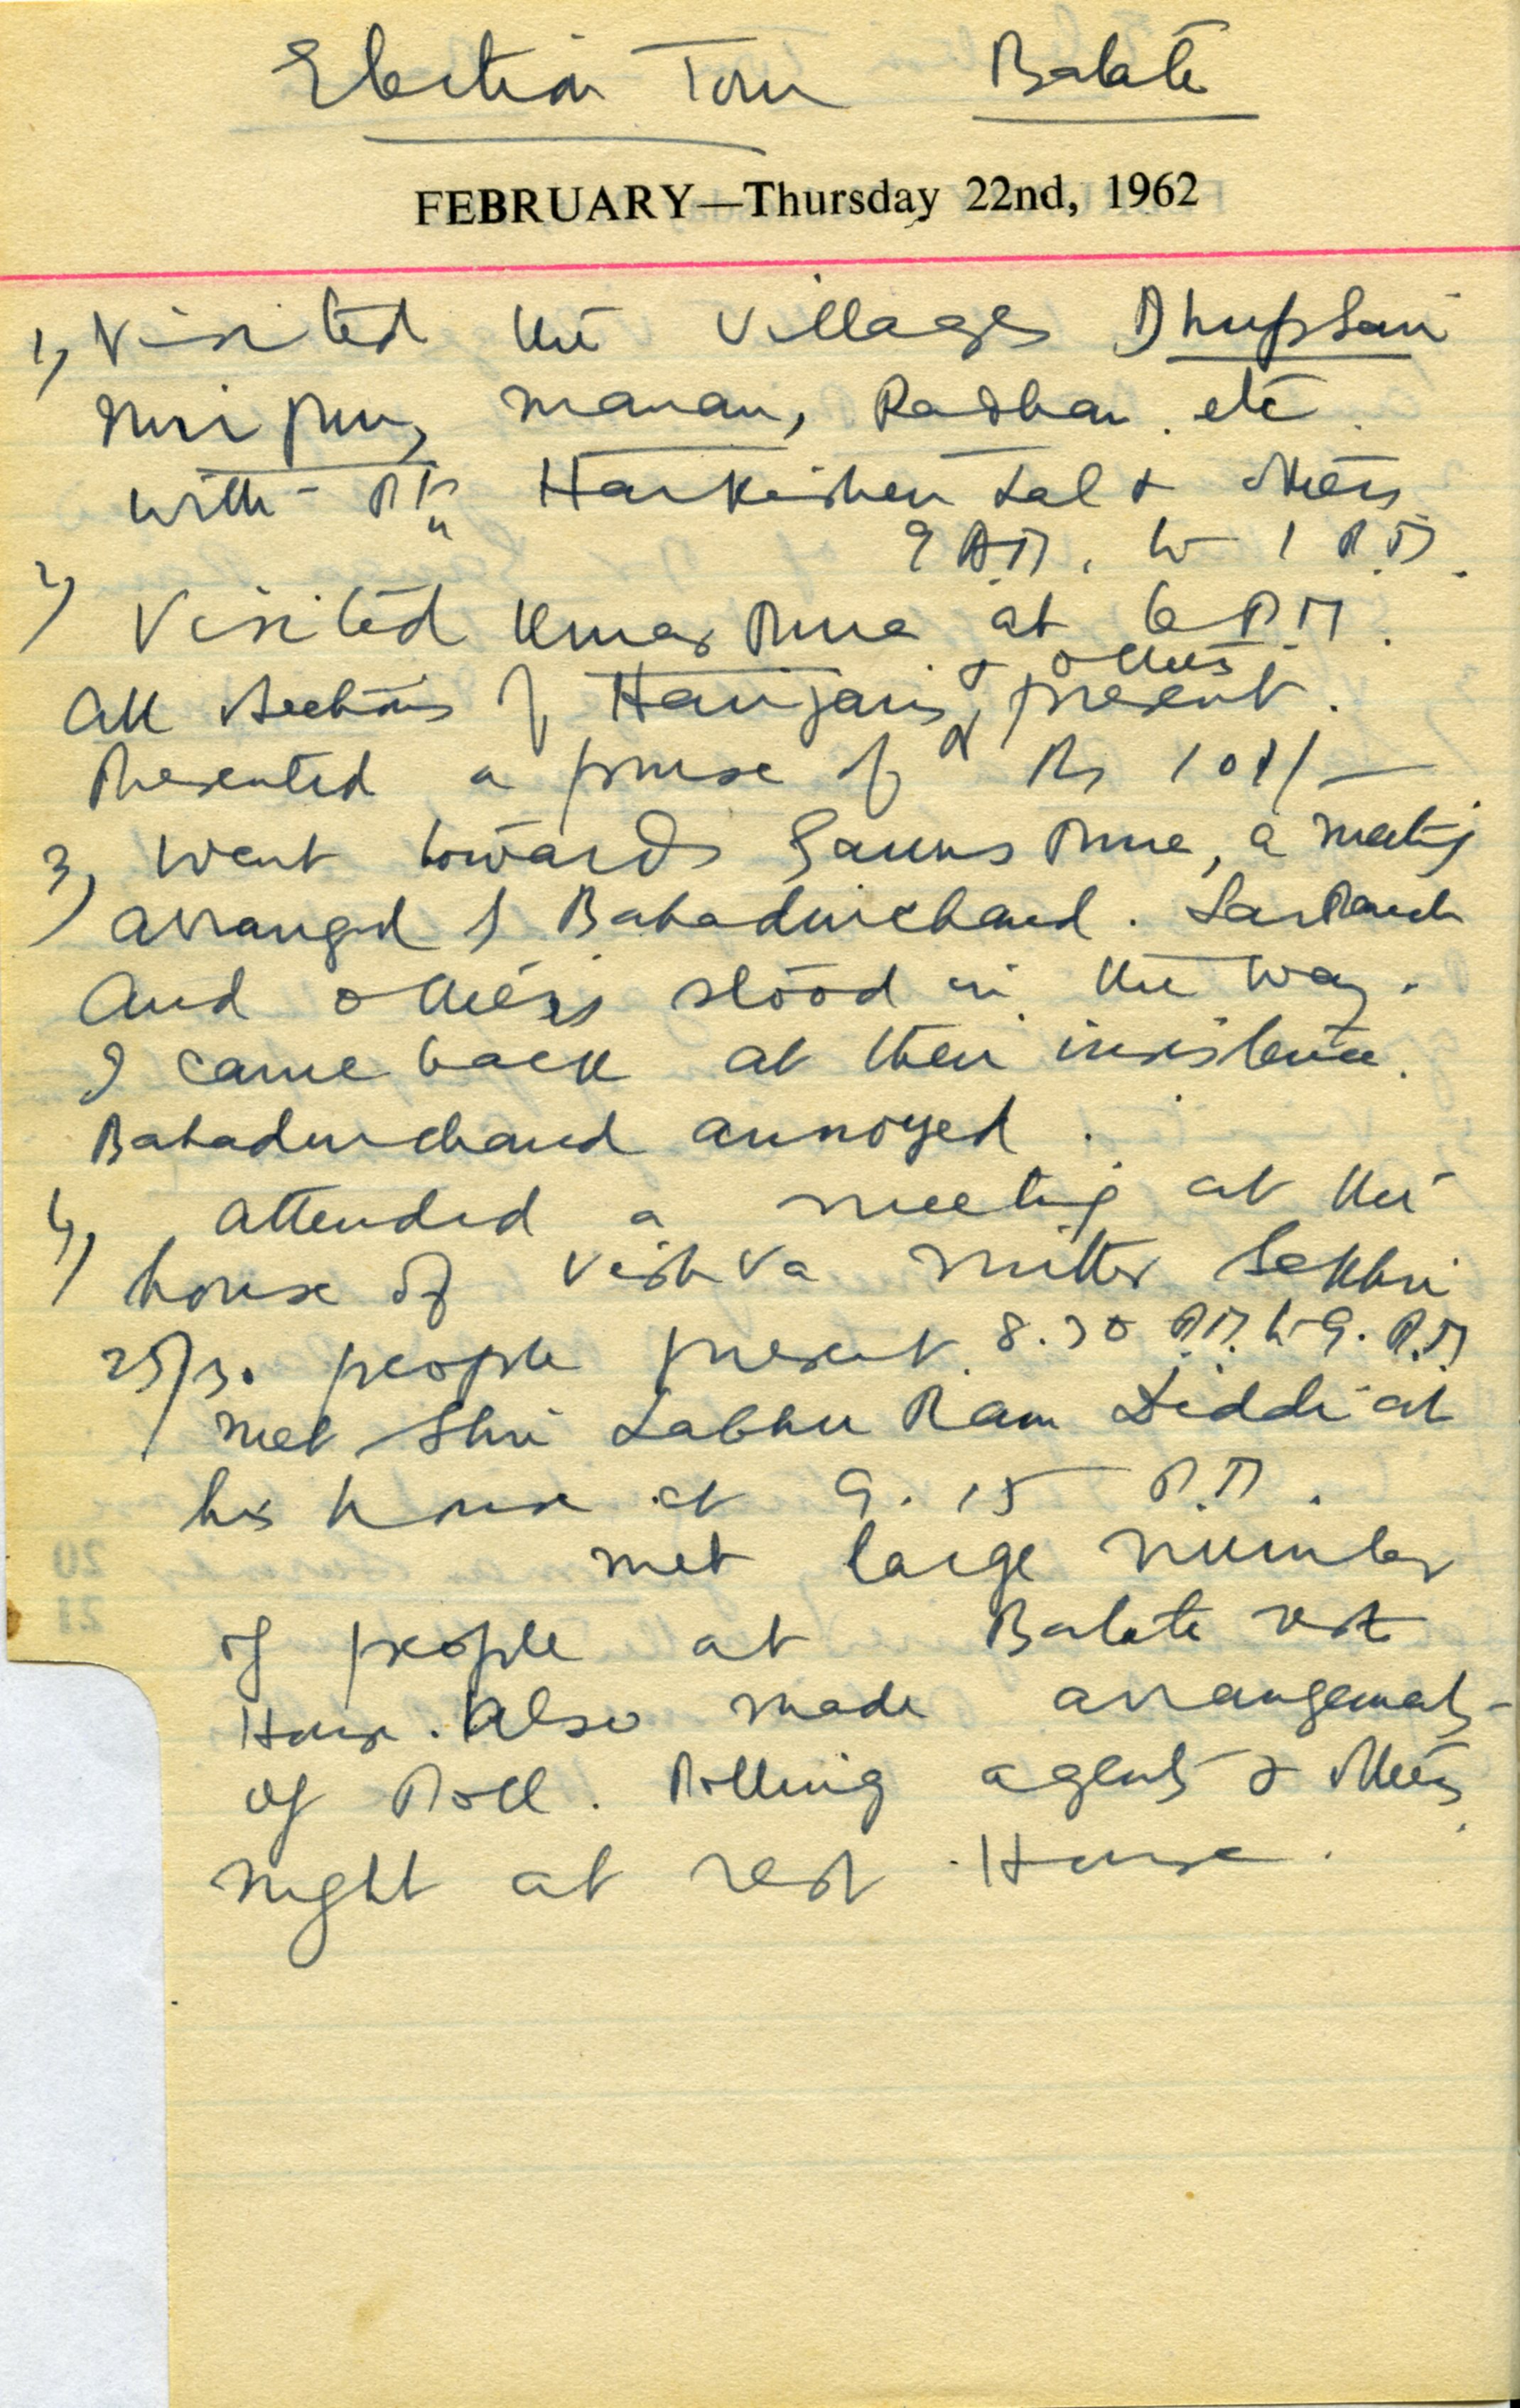 Election Tour Batala
FEBRUARY—Thursday 22nd, 1962
1, Visited the Villages Dhupsari
Miripur, Manan, Radhan. etc.
with Pt. Harkishen Lal & others
9 A.M. to 1 P.M.
2) Visited Umarpura at 6 P.M.
& others
All sections of Harijans, present.
Presented a purse of Rs 101/—
3, Went towards Pura, a meeting
arranged by Bahadurchand. Sarpanch
and others stood in the way.
I came back at their insistence.
Bahadurchand annoyed.
4, attended a meeting at the
house of Vishva Mitter Sekhri
25/30 people present. 8.30 P.M. to 9. P.M.
Met Shri Labhu Ram at
his house at 9.15 P.M.
met large number
of people at Batala rest
House. Also made arrangements
of Poll. Polling agents & others.
Night at rest House.